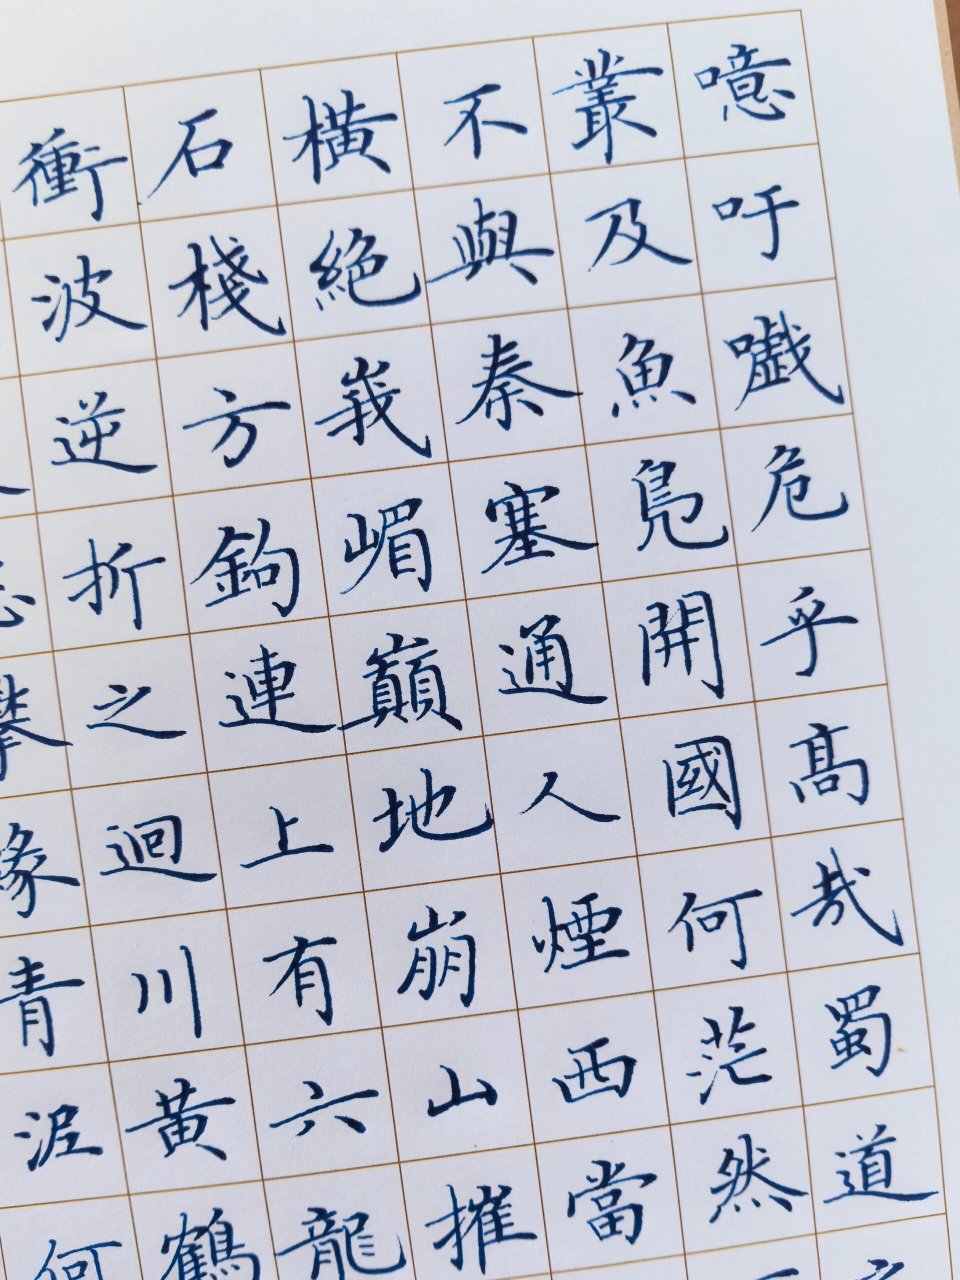 噫吁嚱危乎髙哉蜀道
叢及魚鳧開國何茫然
不與秦塞通人煙西當
橫絶峩嵋巔地崩山摧
石棧方鉤連上有六龍
衝波逆折之迴川黃鶴
攀緣青泥何